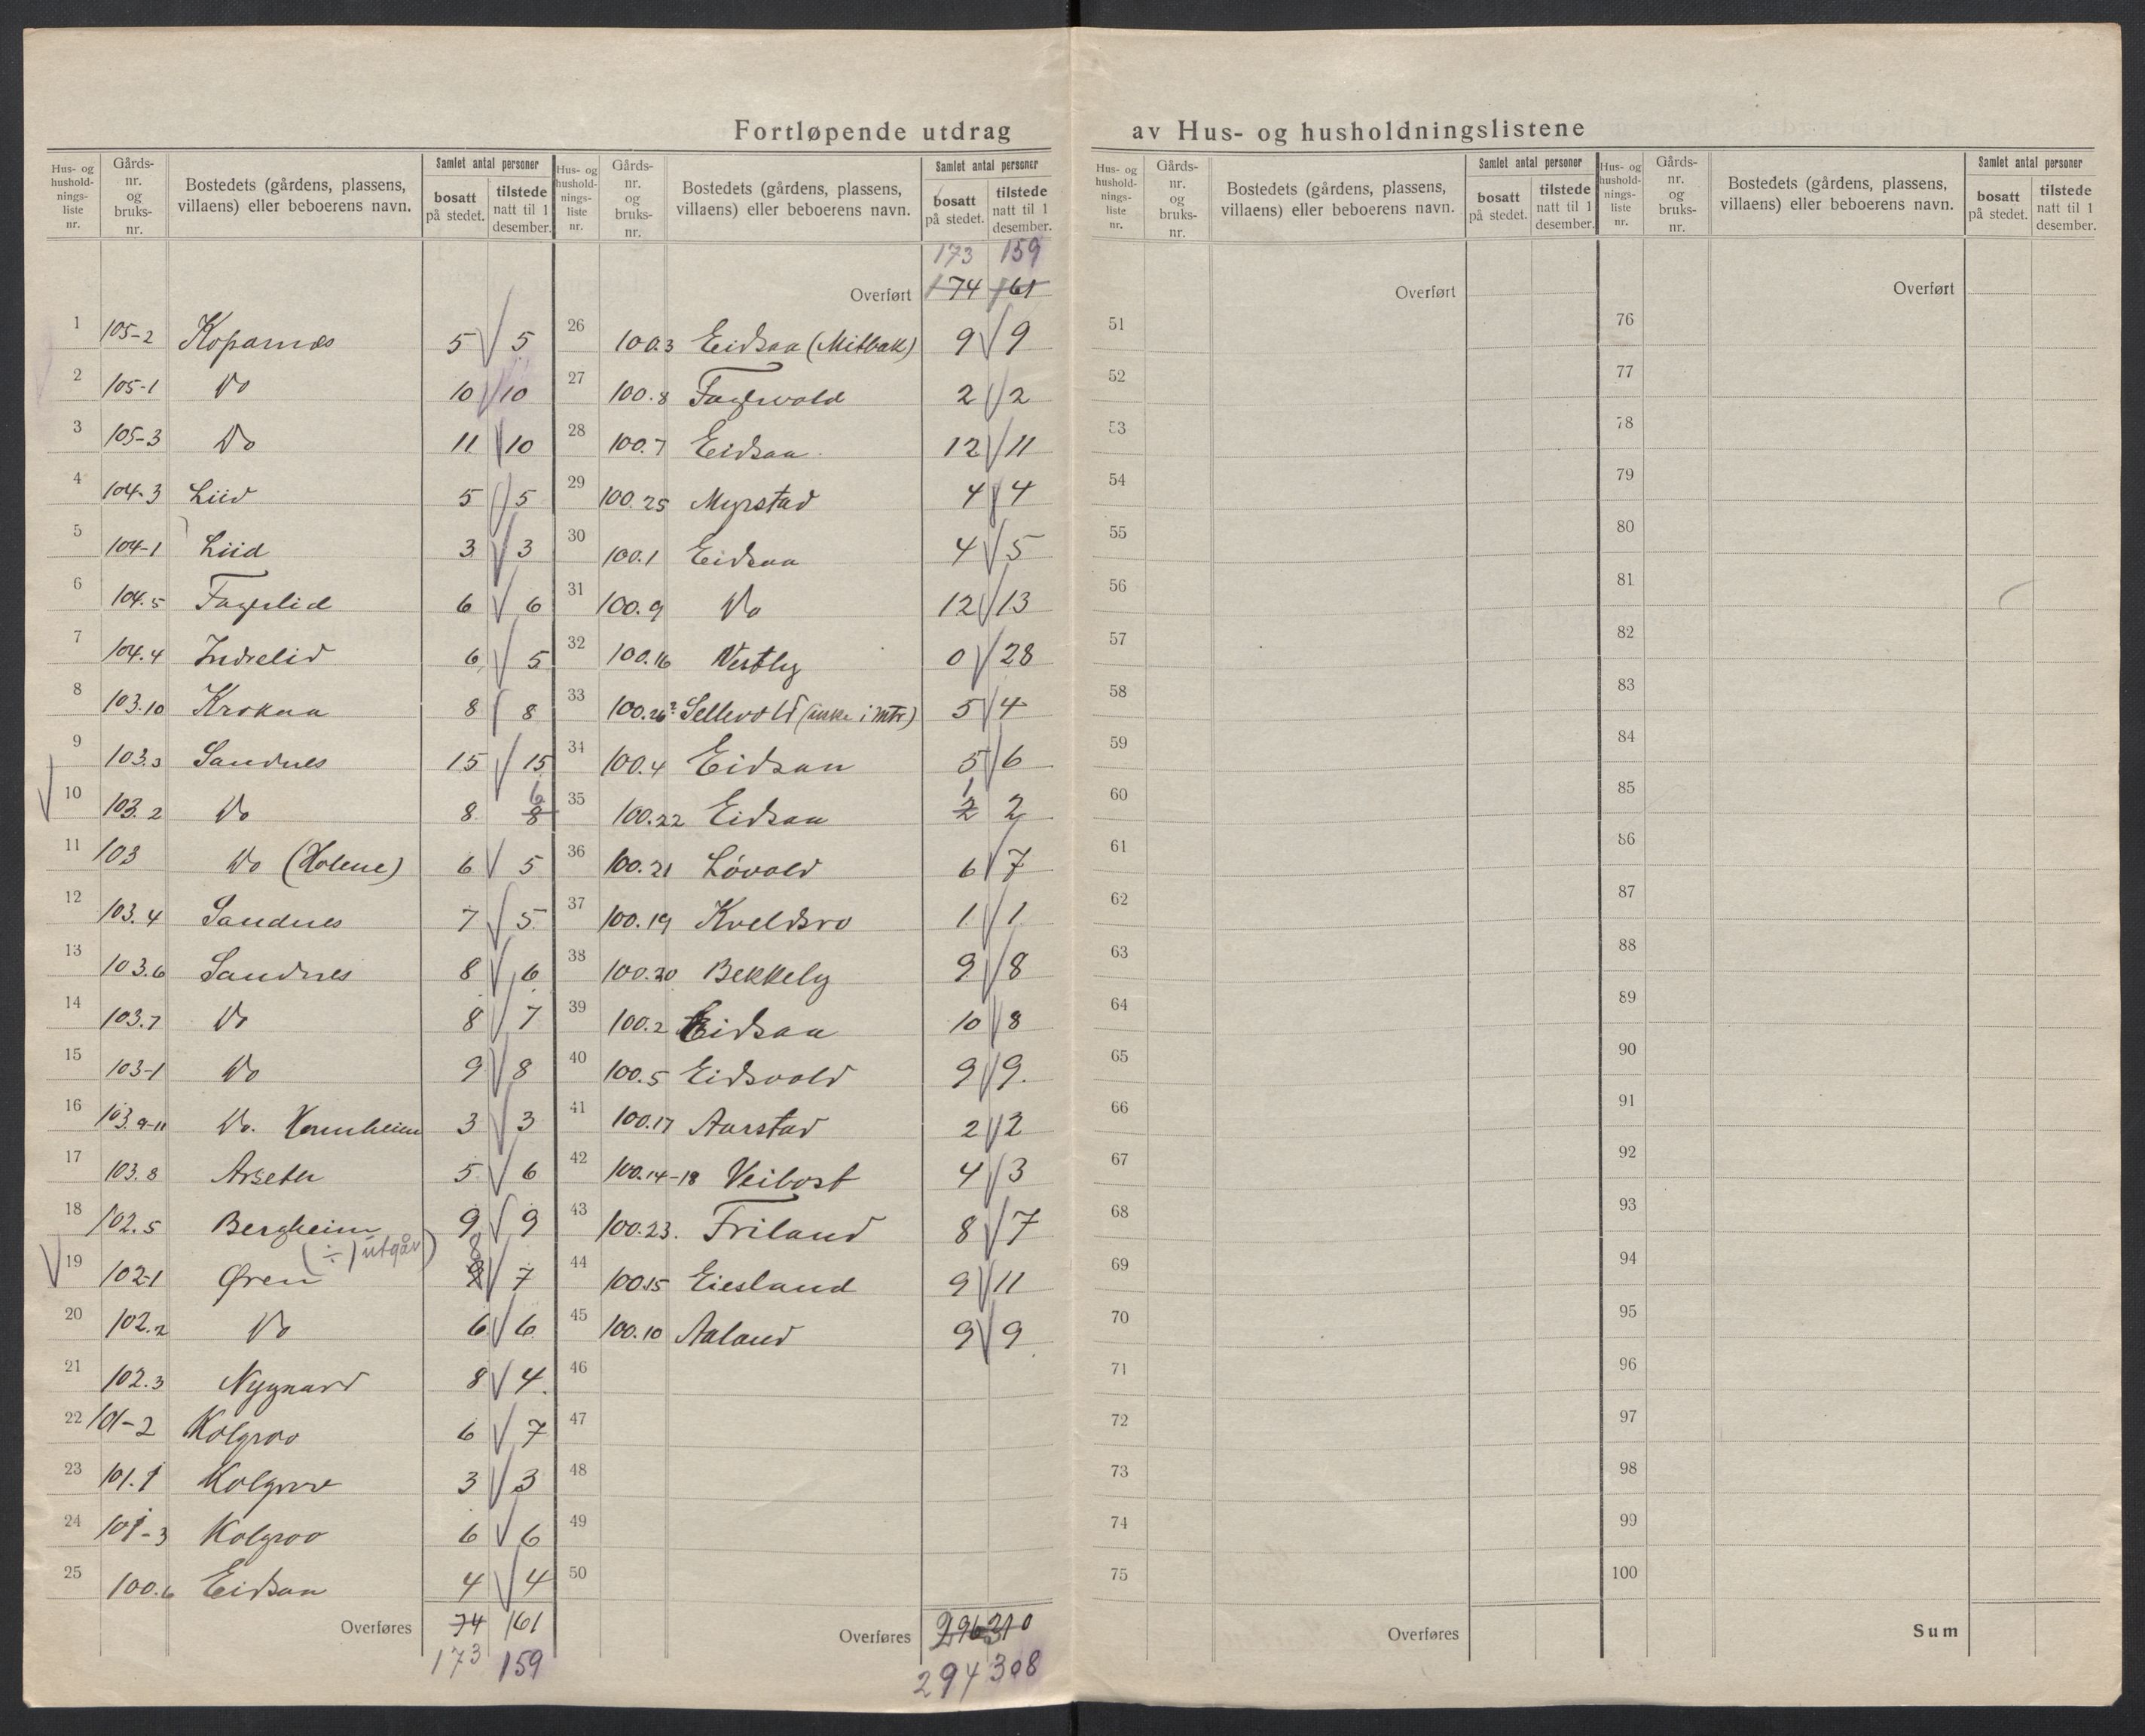 Fortløpende utdrag av Hus- og husholdningslistene
Hus- og husholdningsliste nr. | Gårds- nr. og bruks- nr. | Bostedets (gårdens, plassens, villaens) eller beboerens navn. | Samlet antal personer | bosatt på stedet. | tilstede natt til 1 desember.
1 105-2 Koparnæs 5 5
2 105-1 Do 10 10
3 105-3 Do 11 10
4 104-3 Liid 5 5
5 104-1 Liid 3 3
6 104.5 Fagerlid 6 6
7 104.4 Indrelid 6 5
8 103.10 Krokaa 8 8
9 103.3 Sandnes 15 15
10 103.2 Do 8 8 6
11 103 Do (Holene) 6 5
12 103.4 Sandnes 7 5
13 103.6 Sandnes 8 6
14 103.7 Do 8 7
15 103-1 Do 9 8
16 103.9-11 Do. 3 3
17 103.8 Arseth 5 6
18 102.5 Bergheim 9 9
(÷) utgår) 8
19 102-1 Øren 7
20 102.2 Do 6 6
21 102.3 Nygaard 8 4
22 101-2 Kolgrov 6 7
23 101.1 Kolgrov 3 3
24 101-3 Kolgrov 6 6
25 100.6 Eidsaa 4 4
Overføres 74 161
173 159
Hus- og husholdningsliste nr. | Gårds- nr. og bruks- nr. | Bostedets (gårdens, plassens, villaens) eller beboerens navn. | Samlet antal personer | bosatt på stedet. | tilstede natt til 1 desember.
173 159
Overført 174 161
26 100.3 Eidsaa (Mitbak) 9 9
27 100.8 Fagervold 2 2
28 100.7 Eidsaa 12 11
29 100.25 Myrstad 4 4
30 100.1 Eidsaa 4 5
31 100.9 Do 12 13
32 100.16 Vestby 0 28
33 100.26? Sellevold (ikke i mtr) 5 4
34 100.4 Eidsaa 5 6
35 100.22 Eidsaa 2 1 2
36 100.21 Løvold 6 7
37 100.19 Kveldsro 1 1
38 100.20 Bekkely 9 8
39 100.2 Eidsaa 10 8
40 100.5 Eidsvold 9 9.
41 100.17 Aarstad 2 2
42 100.14-18 Veibost 4 3
43 100.23. Friland 8 7
44 100.15 Eiesland 9 11
45 100.10 Aaland 9 9
46
47
48
49
50
Overføres 296 310
294 308
Hus- og husholdningsliste nr. | Gårds- nr. og bruks- nr. | Bostedets (gårdens, plassens, villaens) eller beboerens navn. | Samlet antal personer | bosatt på stedet. | tilstede natt til 1 desember.
Overført
51
52
53
54
55
56
57
58
59
60
61
62
63
64
65
66
67
68
69
70
71
72
73
74
75
Overføres
Hus- og husholdningsliste nr. | Gårds- nr. og bruks- nr. | Bostedets (gårdens, plassens, villaens) eller beboerens navn. | Samlet antal personer | bosatt på stedet. | tilstede natt til 1 desember.
Overført
76
77
78
79
80
81
82
83
84
85
86
87
88
89
90
91
92
93
94
95
96
97
98
99
100
Sum